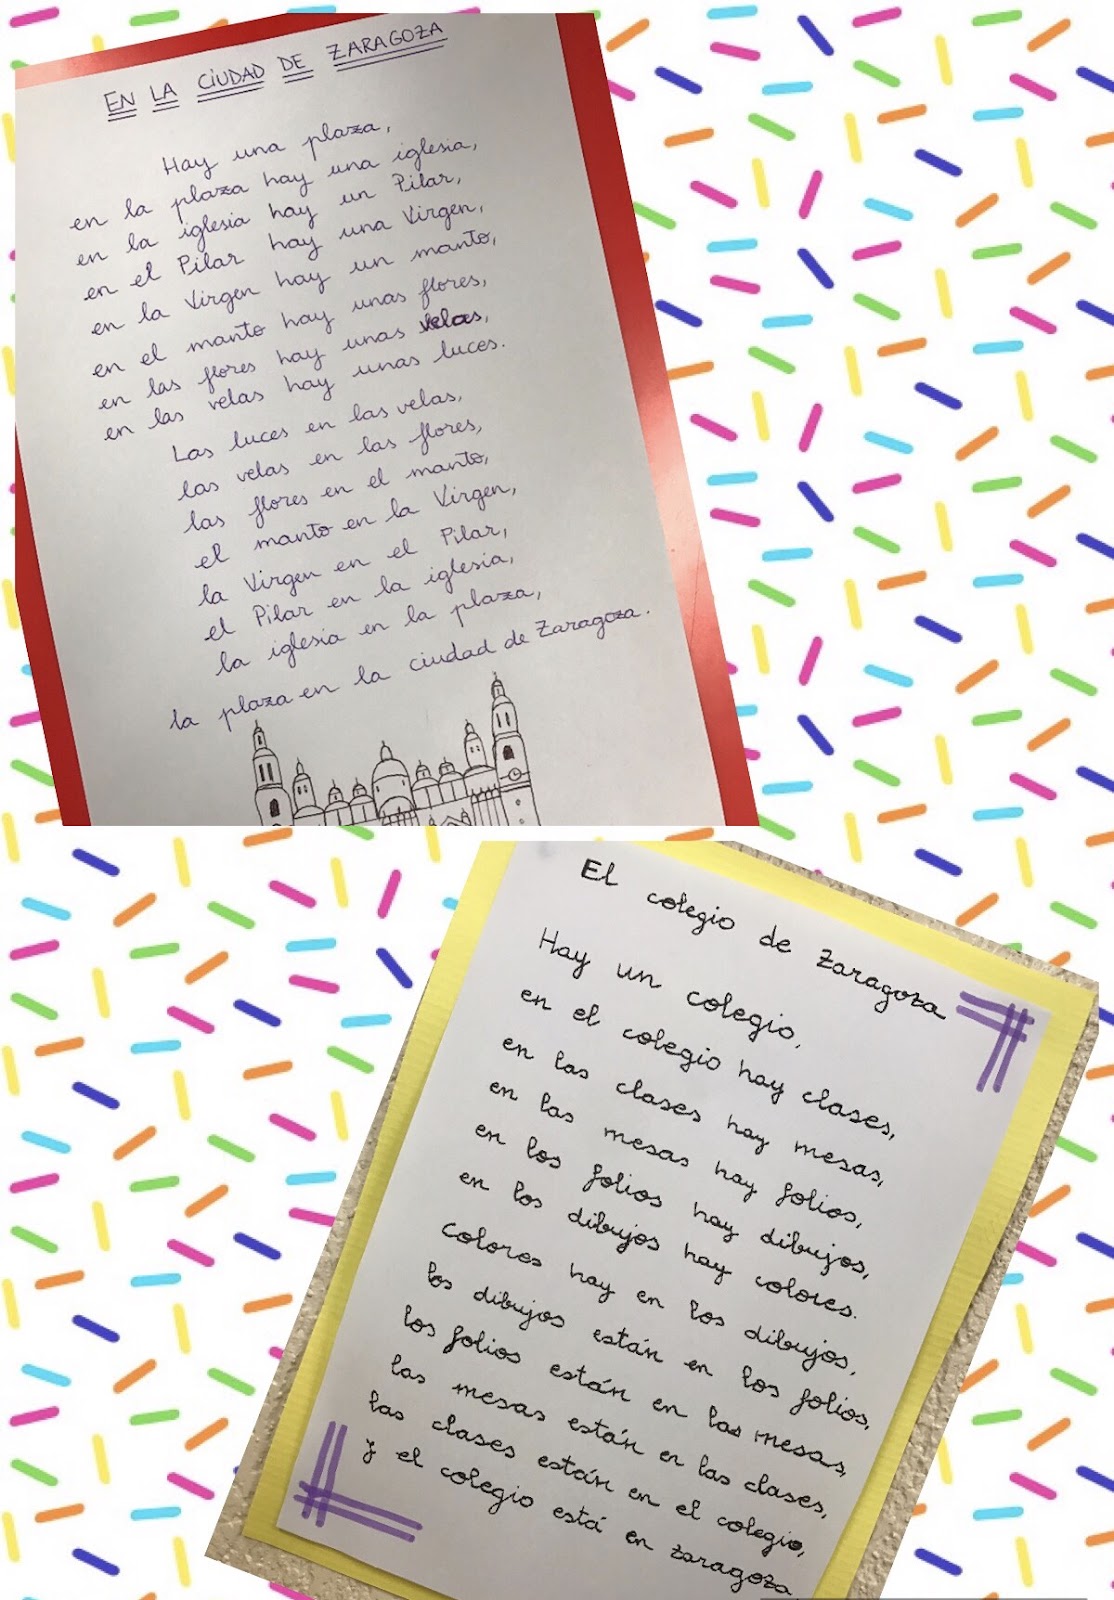 EN LA CIUDAD DE ZARAGOZA
Hay una plaza,
en la plaza hay una iglesia,
en la iglesia hay un Pilar,
en el Pilar hay una Virgen,
en la Virgen hay un manto,
en el manto hay unas flores,
en las flores hay unas velas,
en las velas hay unas luces.
Las luces en las velas,
las velas en las flores,
las flores en el manto,
el manto en la Virgen,
la Virgen en el Pilar,
el Pilar en la iglesia,
la iglesia en la plaza,
la plaza en la ciudad de Zaragoza.
El colegio de Zaragoza
Hay un colegio,
en el colegio hay clases,
en las clases hay mesas,
en las mesas hay folios,
en los folios hay dibujos,
en los dibujos hay colores.
Colores hay en los dibujos,
los dibujos están en los folios,
los folios están en las mesas,
las mesas están en las clases,
las clases están en el colegio,
y el colegio está en Zaragoza